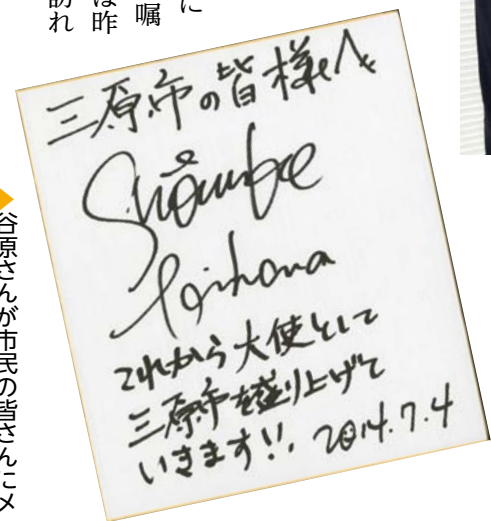 に
嘱
は昨
訪れ
三原市の皆様へ
Shosuke
Tanihara
これから大使として
三原市を盛り上げて
いきます!! 2014.7.4
谷原さんが市民の皆さんにメ